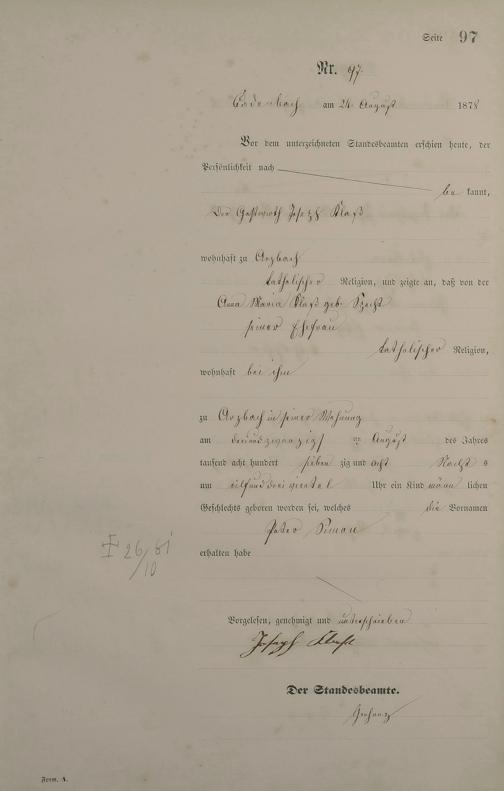 Seite 97
Nr. 97.
Cadenbach am 24 August 1878
Vor dem unterzeichneten Standesbeamten erschien heute, der
Persönlichkeit nach
be kannt,
Der Gastwirth Joseph Klaß
wohnhaft zu Arzbach
katholischer Religion, und zeigte an, daß von der
Anna Maria Klaß geb.
seiner Ehefrau
katholischer Religion,
wohnhaft bei ihm
zu Arzbach in seiner Wohnung
am dreiundzwanzigs ten August des Jahres
tausend acht hundert sieben zig und acht Nachts
um eilfunddreiviertel Uhr ein Kind männ lichen
Geschlechts geboren worden sei, welches die Vornamen
Peter Simon
erhalten habe
26/10 61
Vorgelesen, genehmigt und unterschrieben
Joseph
Der Standesbeamte.
Form. A.